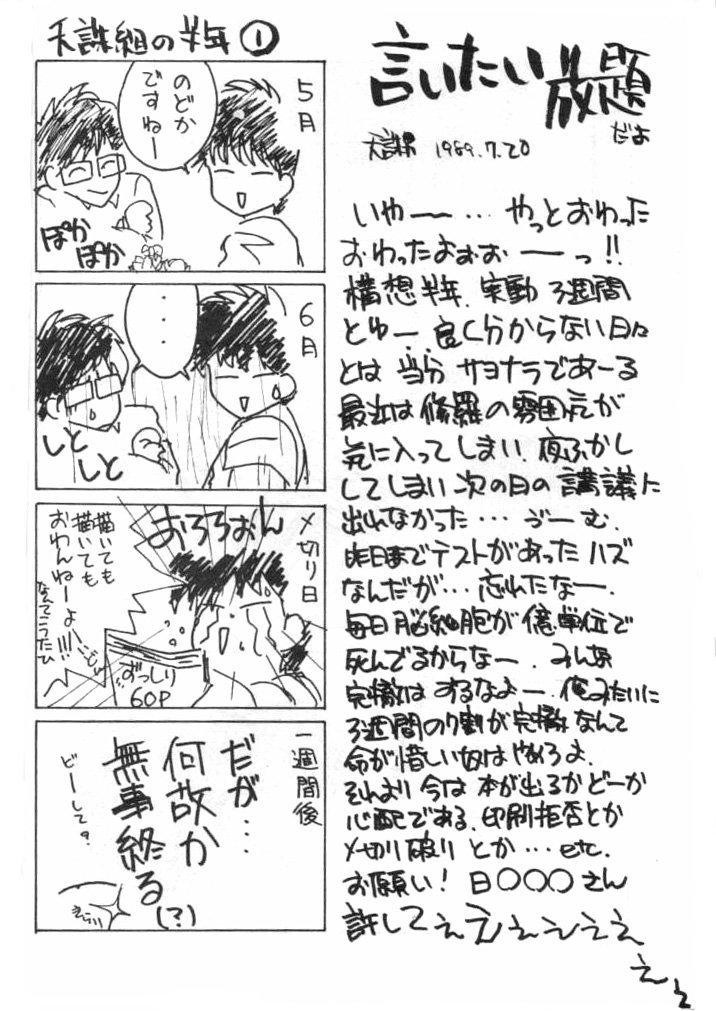 天誅組の半年①
5月
のどか
ですねー
ぽか
ぽか
6月
・・・
しと
しと
〆切り日
おろろぉん
描いても
描いても
おわんねーよ〜
!!!
なんてこったい
ずっしり
60P
一週間後
だが…
何故か
無事終る
(?)
どーして?
言いたい放題
だよ
天誅 1989.7.20
いやー… やっとおわった
おわったよぉぉーっ!!
構想半年、実動3週間
とゆー、良く分からない日々
とは当分サヨナラであーる
最近は修羅の雰囲気が
気に入ってしまい、夜ふかし
してしまい次の日の講議に
出れなかった…ゔーむ、
昨日までテストがあったハズ
なんだが…忘れたなー、
毎日脳細胞が億単位で
死んでるからなー、みんな
完徹はするなよー、俺みたいに
3週間の9割が完徹なんて
命が惜しい奴はやめろよ、
それより今は本が出るかどーか
心配である、印刷拒否とか
〆切り破りとか…etc.
お願い!日○○○さん
許してぇえぇぇぇぇ
ぇぇ